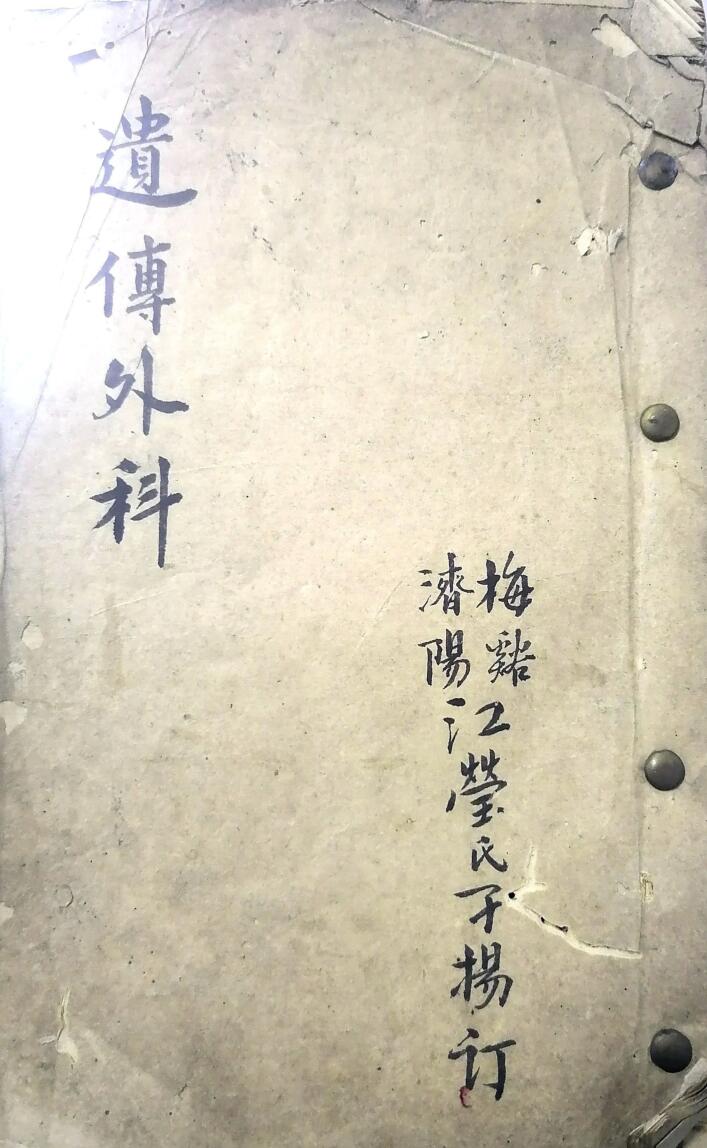 遺傳外科
梅谿
濟陽
江瑩氏子楊訂